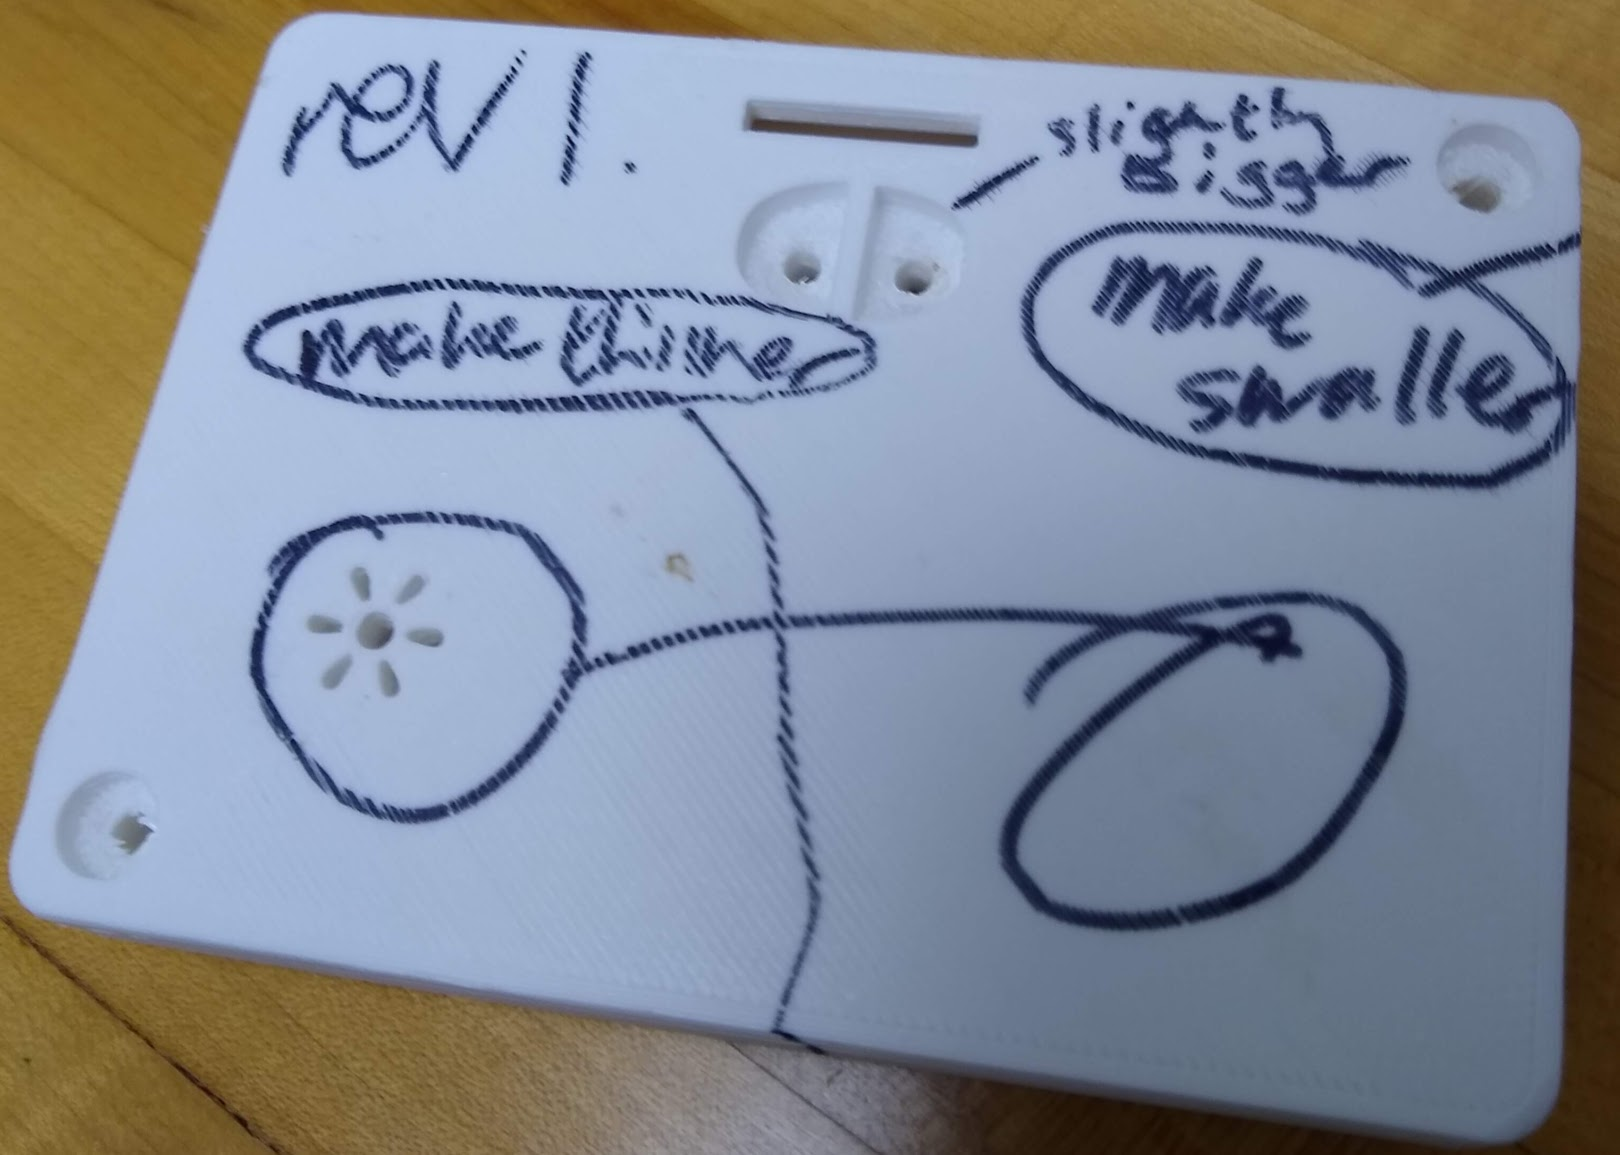 rev 1.
slightly
Bigger
make thinner
make
smaller